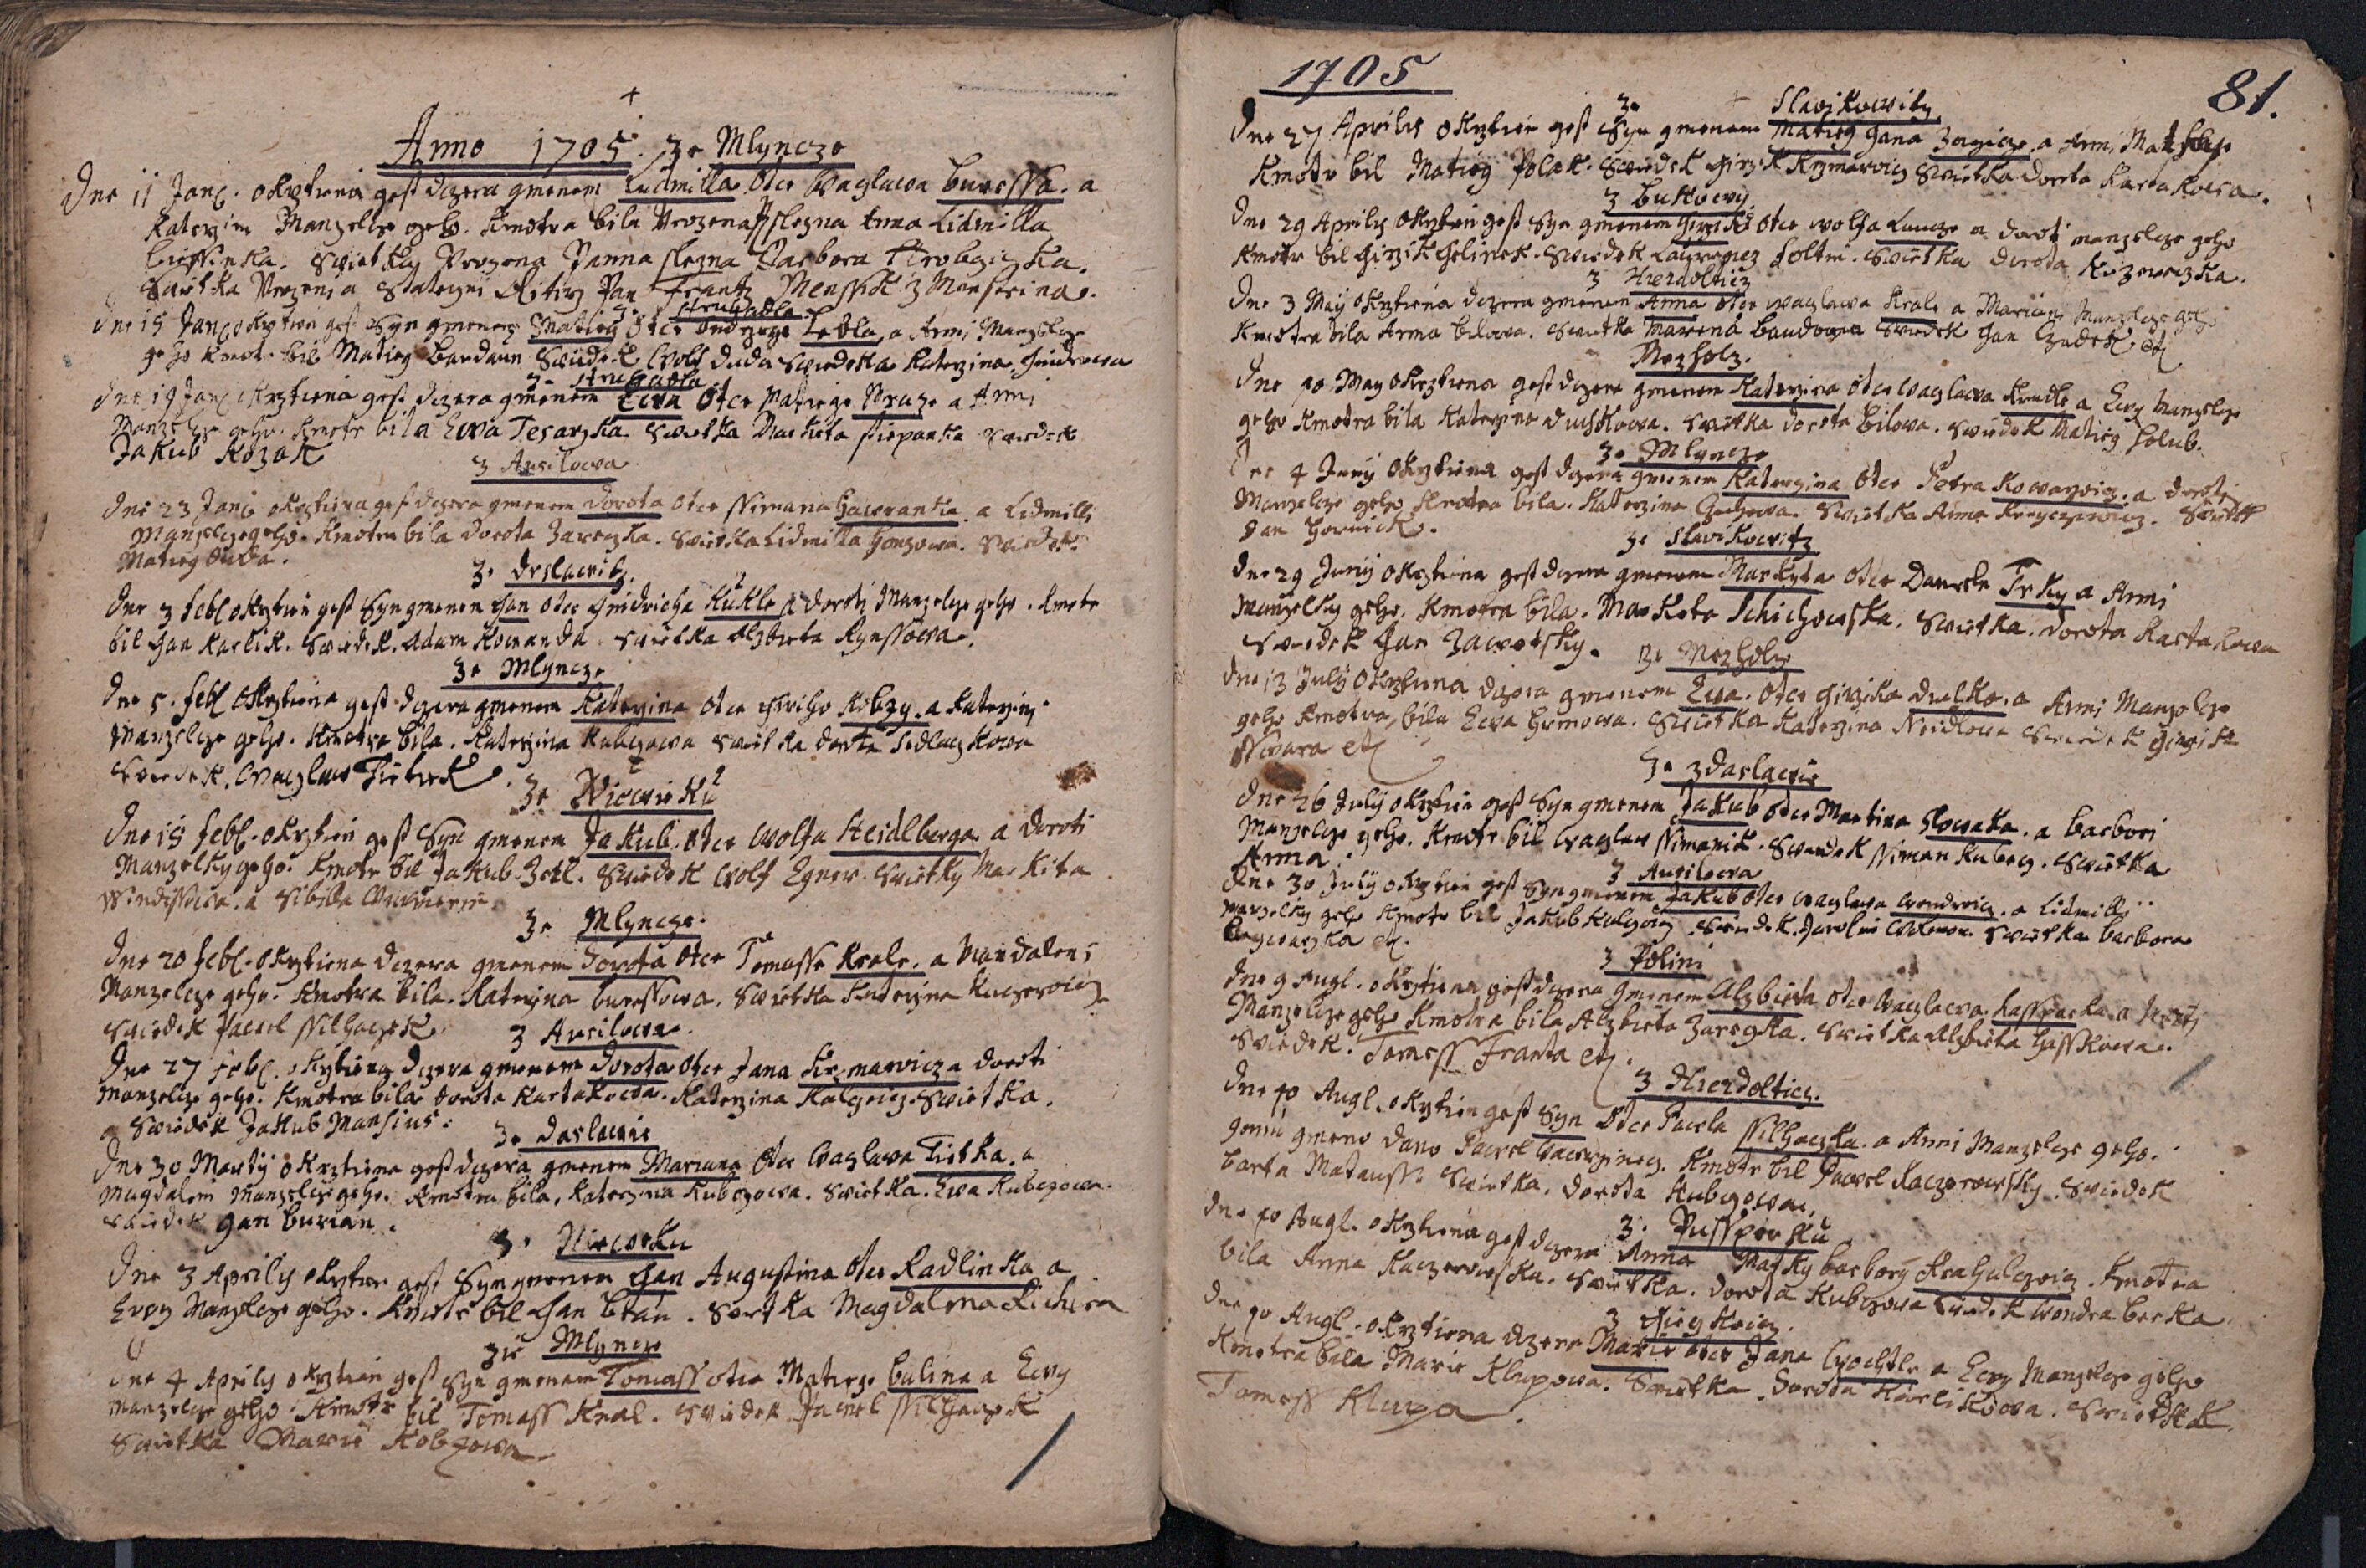 Anno 1705. Ze Mlyncze
Dne 11 Jan. okrztiena gest dczera gmenem Ludmilla. Otce Waczlawa Buressa. a
Katerzini Manzelky geho. Kmotra bila Urozena Slezna Anna Lidmilla
Swietky Urozena Panna Slezna Barbora
Swietka Urozeni a Stateczni Ritirz Pan Frantz Menssik z Mensteina.
z Struhadla
Dne 15 Jan. okrztien gest Syn gmenem Matieg Otce Ondrzege Lebla, a Anni Manzelky
geho kmotr bil Matieg Baudaun Swiedek Wolf Duda Swiedka Katerzina Jindrowa
z Struhadla
Dne 19 Jan. okrztiena gest dczera gmenem Ewa Otce Matiege Wraze a Anni
Manzelky geho. Kmotr bila Ewa Tesarzka. Swietka Markita Stiepanka Swiedek
Jakub Kozak
z Aurilowa
Dne 23 Janu okrztiena gest dczera gmenem Dorota Otce Ssimana Hawrantka a Lidmilli
Manzelky geho. Kmotra bila Dorota Zareczka. Swietka Lidmilla Honzowa. Swiedek
Matieg Duda.
Ze Drslawitz
Dne 3 Feb. okrztien gest Syn gmenem Jan Otce Jindricha Kukle a Doroti Manzelky geho. Kmotr
bil Jan Karlik. Swiedek. Adam Kowanda Swietka Alzbieta Rynssowa.
Ze Mlyncze
Dne 5. Feb. okrztiena gest dczera gmenem Katerzina Otce Girziho Kobzy. a Katerzini
Manzelky geho. Kmotra bila. Katerzina Kubczowa Swietka Dorta Sedlaczkowa
Swiedek. Waczlaw Tietek
Ze Niowicku
Dne 15 Feb. okrztien gest Syn gmenem Jakub. Otce Wolfa Heidlberga a Doroti
Manzelky geho. Kmotr bil Jakub Zetl. Swiedek Wolf Egner. Swietky Markita
a Sibilla
Ze Mlyncze.
Dne 20 Feb. okrztiena dczera gmenem Dorota Otce Tomasse Krale. a Mandaleni
Manzelky geho. Kmotra bila. Katerzina Buressowa. Swietka Katerzina Kuczerowicz
Swiedek Pawel Ssilhaczek
z Aurilowa.
Dne 27 Feb. okrztiena dczera gmenem Dorota Otce Jana Krzmarzicza Doroti
Manzelky geho. Kmotra bila Dorota Kartakowa. Katerzina Kalczicz Swietka.
a Swiedek Jakub Mansius.
Ze Daslawie
Dne 30 Marty okrztiena gest dczera gmenem Mariana Otce Waczlawa Tietka. a
Magdaleni Manzelky geho. Kmotra bila, Katerzina Kubczowa. Swietka. Ewa Kubczowa.
Swiedek Jan Burian.
Z. Niowcku
Dne 3 Aprilis okrztien gest Syn gmenem Jan Augustina Otce Radlinka a
Ewy Manzelky geho. Kmotr bil Jan Braun. Swietka Magdalena
zie Mlyncze
Dne 4 Aprilis okrztien gest Syn gmenem Tomass otce Matiege Balina a Ewy
Manzelky geho. Kmotr bil Tomass Kral. Swiedek Pawel Ssilhaczek
Swietka Marie Kobzowa
1705
81.
Ze Slawikowitz
Dne 27 Aprilis okrztien gest Syn gmenem Matieg Jana Zagicze. a Anni Matky
Kmotr bil Matieg Polak. Swiedek Girzik Krzmarzicz Swietka Dorota Kartakowa.
z Bukowy
Dne 29 Aprilis okrztien gest Syn gmenem Girzik Otce Wolfa Luncze a Doroti manzelky geho
Kmotr bil Girzik Gelinek. Swiedek Foltin. Swietka Dorota
z Hrzdolticz
Dne 3 May okrztiena dczera gmenem Anna Otce Waczlawa Krale a Mariani Manzelky geho
Kmotra bila Anna Bilowa. Swietka Mariana Baudowa Swiedek Jan Czadek. etc
z Mezholz.
Dne 10 May okrztiena gest dczera gmenem Katerzina Otce Waczlawa Krudle a Ewy Manzelky
geho Kmotra bila Katerzina Duchkowa. Swietka Dorota Bilowa. Swiedek Matieg Holub.
Ze Mlyncze
Dne 4 Juny okrztiena gest dczera gmenem Katerzina Otce Petra Kowarzicz. a Doroti
Manzelky geho Kmotra bila. Katerzina Swietka Anna Swiedek
Jan Hornick.
Ze Slawikowitz
Dne 29 Juny okrztiena gest dczera gmenem Markyta Otce Daniele Trky a Anni
Manzelky geho. Kmotra bila. Marketa Schichowska. Swietka. Dorota Kartakowa
Swiedek Jan Zaworsky.
Ze Mezholz
Dne 13 July okrztiena dczera gmenem Ewa. Otce Girzika Dulka. a Anni Manzelky
geho Kmotra, bila Ewa Swietka Katerzina Swiedek Girzik
Sswara etc
Ze Zdaslawie
Dne 26 July okrztien gest Syn gmenem Jakub Otce Martina Slowaka. a Barbori
Manzelky geho. Kmotr bil Waczlaw Ssimanik. Swiedek Ssiman Kubecz. Swietka
Anna.
z Aurilowa
Dne 30 July okrztien gest Syn gmenem Jakub Otce Waczlawa Wondrzicz. a Lidmilli
Manzelky geho Kmotr bil Jakub Kalczicz Swiedek. Swietka Barbora
etc.
z Polini
Dne 9 Augl. okrztiena gest dczera gmenem Alzbieta Otce Waczlawa. Kassparka. a
Manzelky geho Kmotra bila Alzbieta Zareczka. Swietka Alzbieta Hasskowa.
Swiedek. Tomass Franta etc.
z Hrzdolticz.
Dne 10 Augl. okrztien gest Syn Otce Pawla Ssilhaczka. a Anni Manzelky geho.
gemu gmeno dano Pawel Wawrzinecz. Kmotr bil Pawel Kaczerowsky. Swiedek
Barta Matauss. Swietka. Dorota Kubczowa.
Z. Pussperku
Dne 10 Augl. okrztiena gest dczera Anna Matky Barbory Krahulczicz. Kmotra
bila Anna Kaczerowska. Swietka. Dorota Kubczowa Swiedek Wondra Berka
Dne 10 Augl. okrztiena dczera Marie Otce Jana Wochtle a Ewy Manzelky geho
Kmotra bila Marie Klupowa. Swietka Dorota Karlikowa. Swiedek
Tomass Klupa.